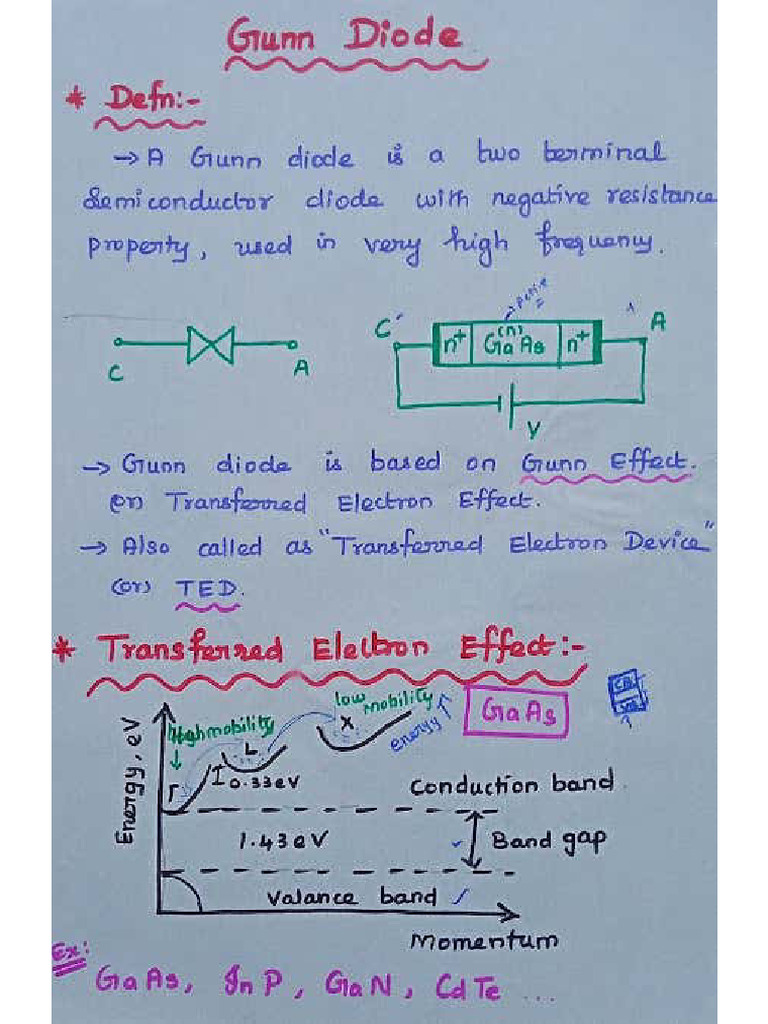 Gunn Diode
* Defn:-
→ A Gunn diode is a two terminal
semiconductor diode with negative resistance
property, used in very high frequency.
C A
C n+ (n) GaAs n+ A
V
→ Gunn diode is based on Gunn Effect.
(or) Transferred Electron Effect.
→ Also called as "Transferred Electron Device"
(or) TED.
* Transferred Electron Effect:-
Energy, eV
High mobility
low mobility
energy ↑
GaAs
CB
VB
Γ L X
0.33eV
Conduction band
1.43eV
Band gap
Valance band
Momentum
Ex:
GaAs, InP, GaN, CdTe ...